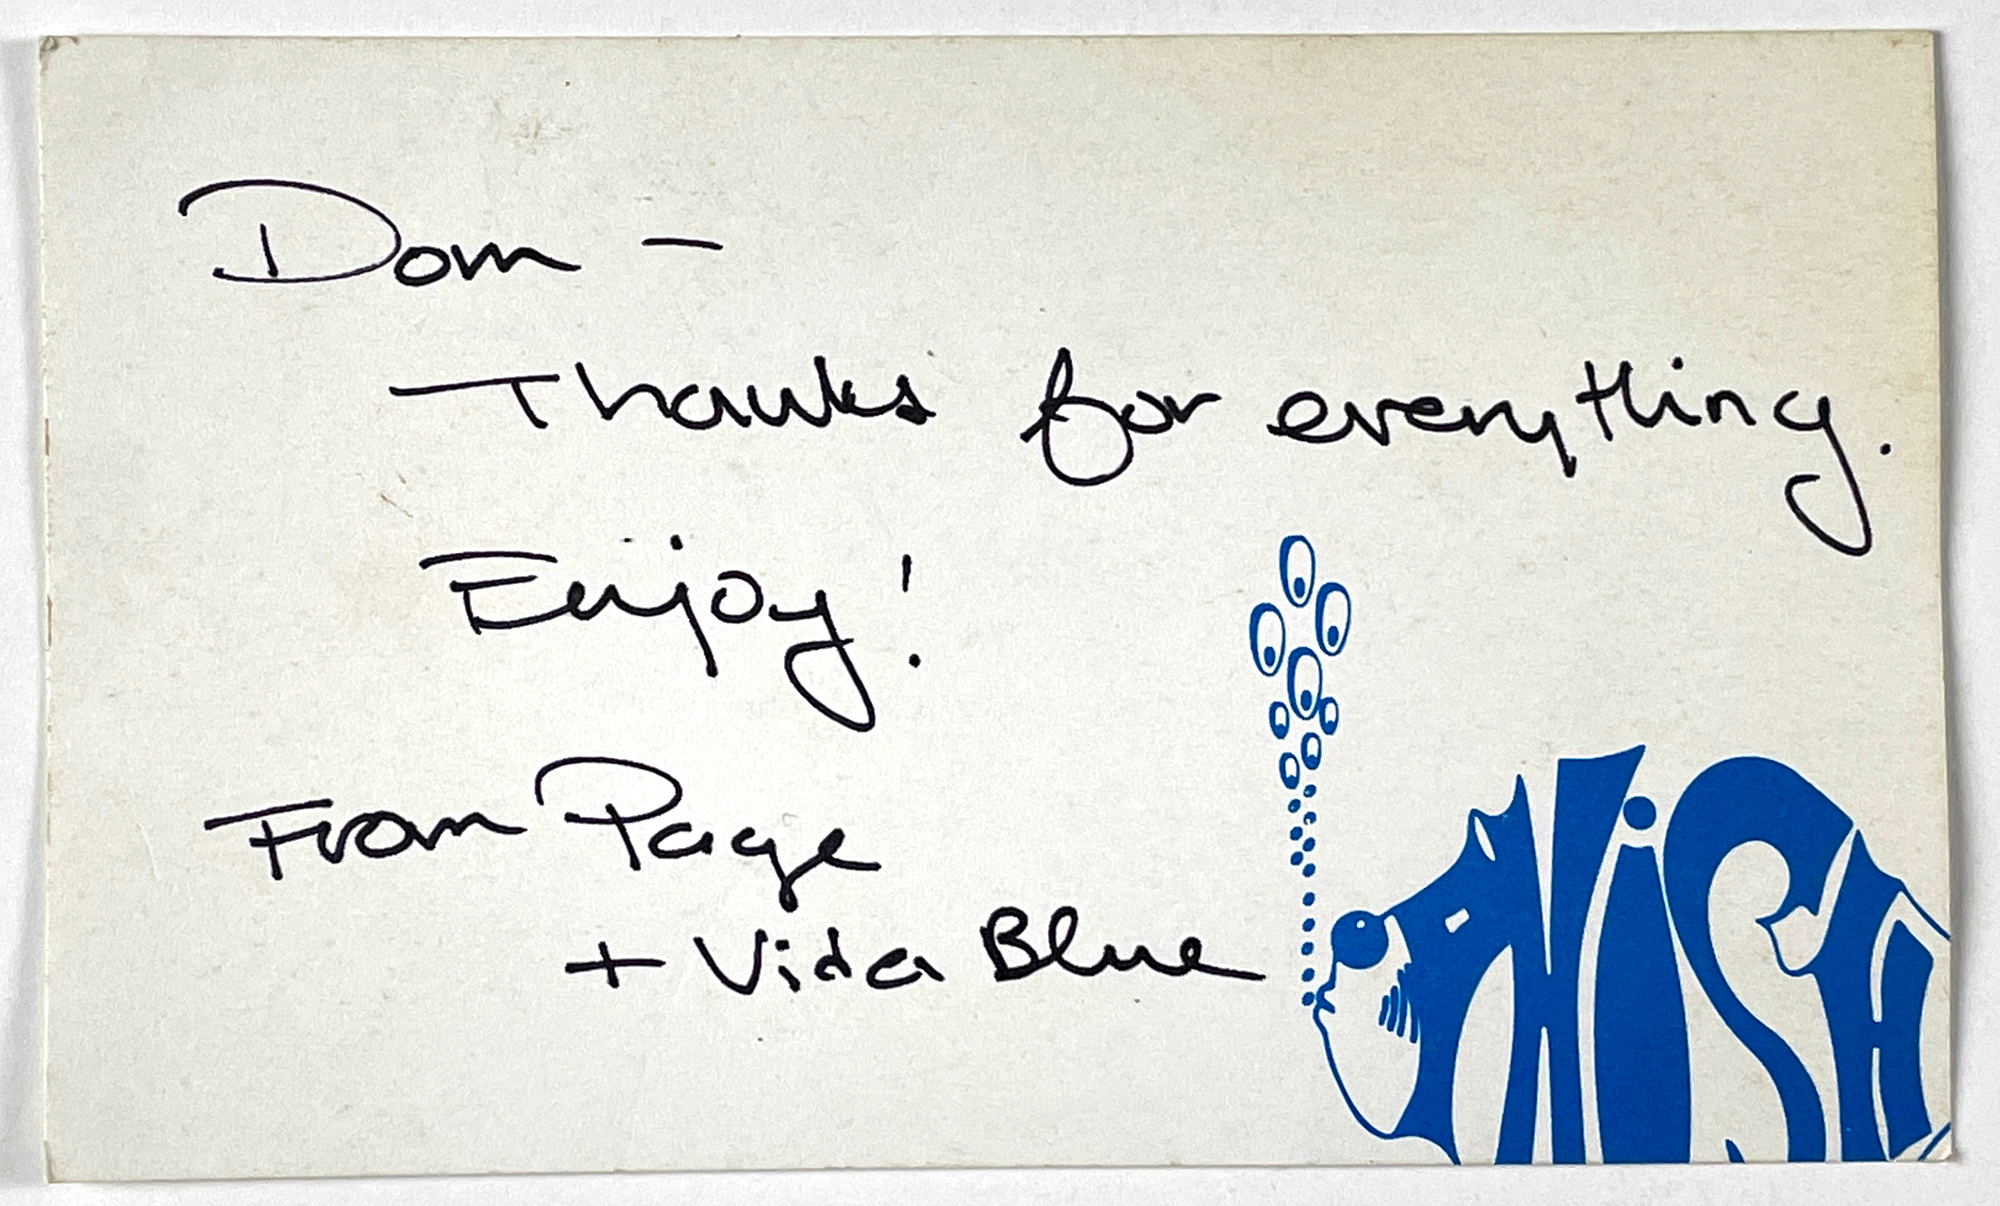 Dom –
Thanks for everything.
Enjoy!
From Page
+ Vida Blue
PHiSH